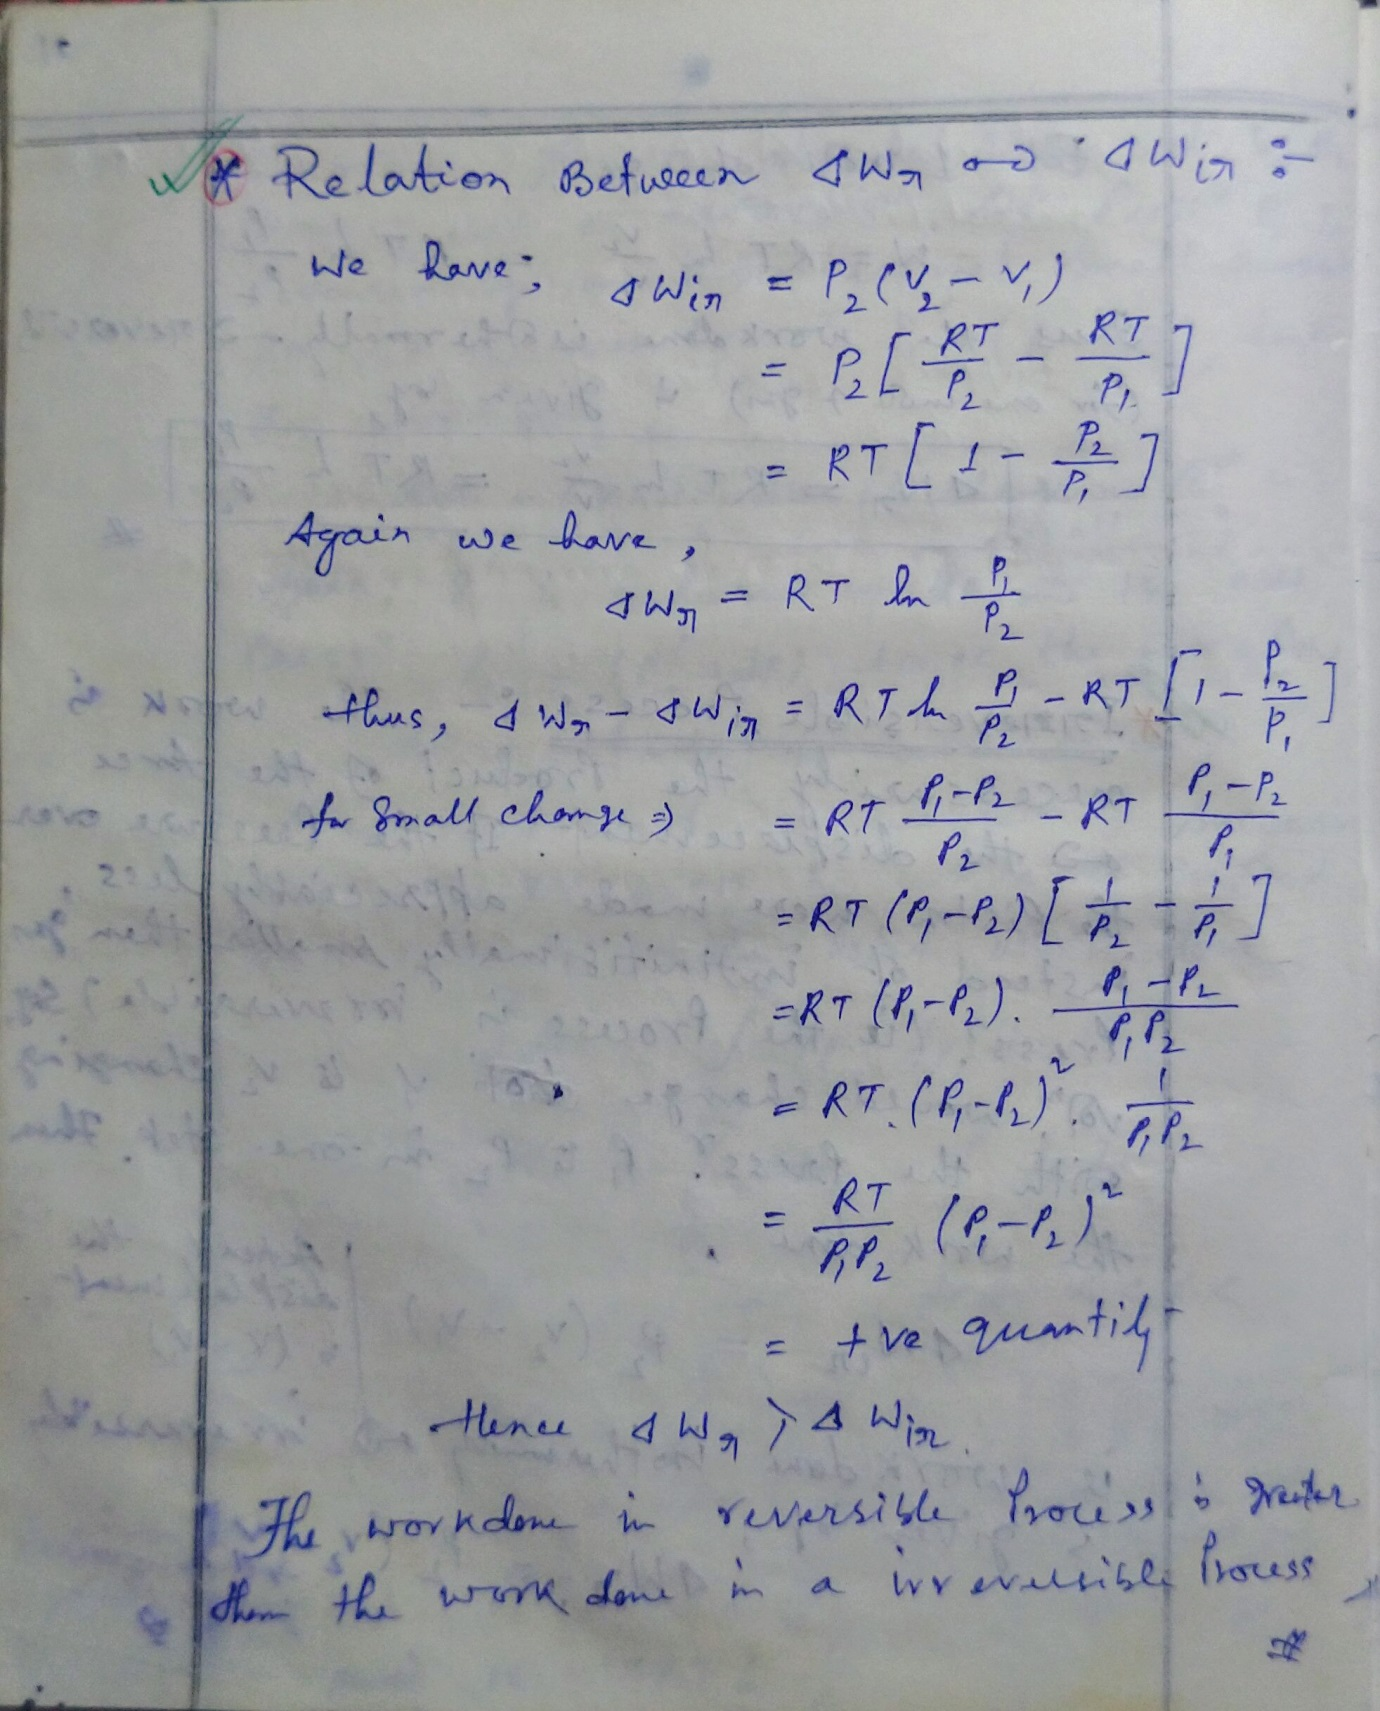 * Relation Between ΔWr and ΔWir :-
We have; ΔWir = P₂(V₂ - V₁)
= P₂[RT/P₂ - RT/P₁]
= RT[1 - P₂/P₁]
Again we have,
ΔWr = RT ln P₁/P₂
thus, ΔWr - ΔWir = RT ln P₁/P₂ - RT[1 - P₂/P₁]
for Small change ⇒ = RT (P₁-P₂)/P₂ - RT (P₁-P₂)/P₁
= RT (P₁-P₂)[1/P₂ - 1/P₁]
= RT (P₁-P₂). (P₁-P₂)/P₁P₂
= RT.(P₁-P₂)². 1/P₁P₂
= RT/P₁P₂ (P₁-P₂)²
= +ve quantity
Hence ΔWr > ΔWir.
The workdone in reversible Process is greater
than the work done in a irreversible Process
#